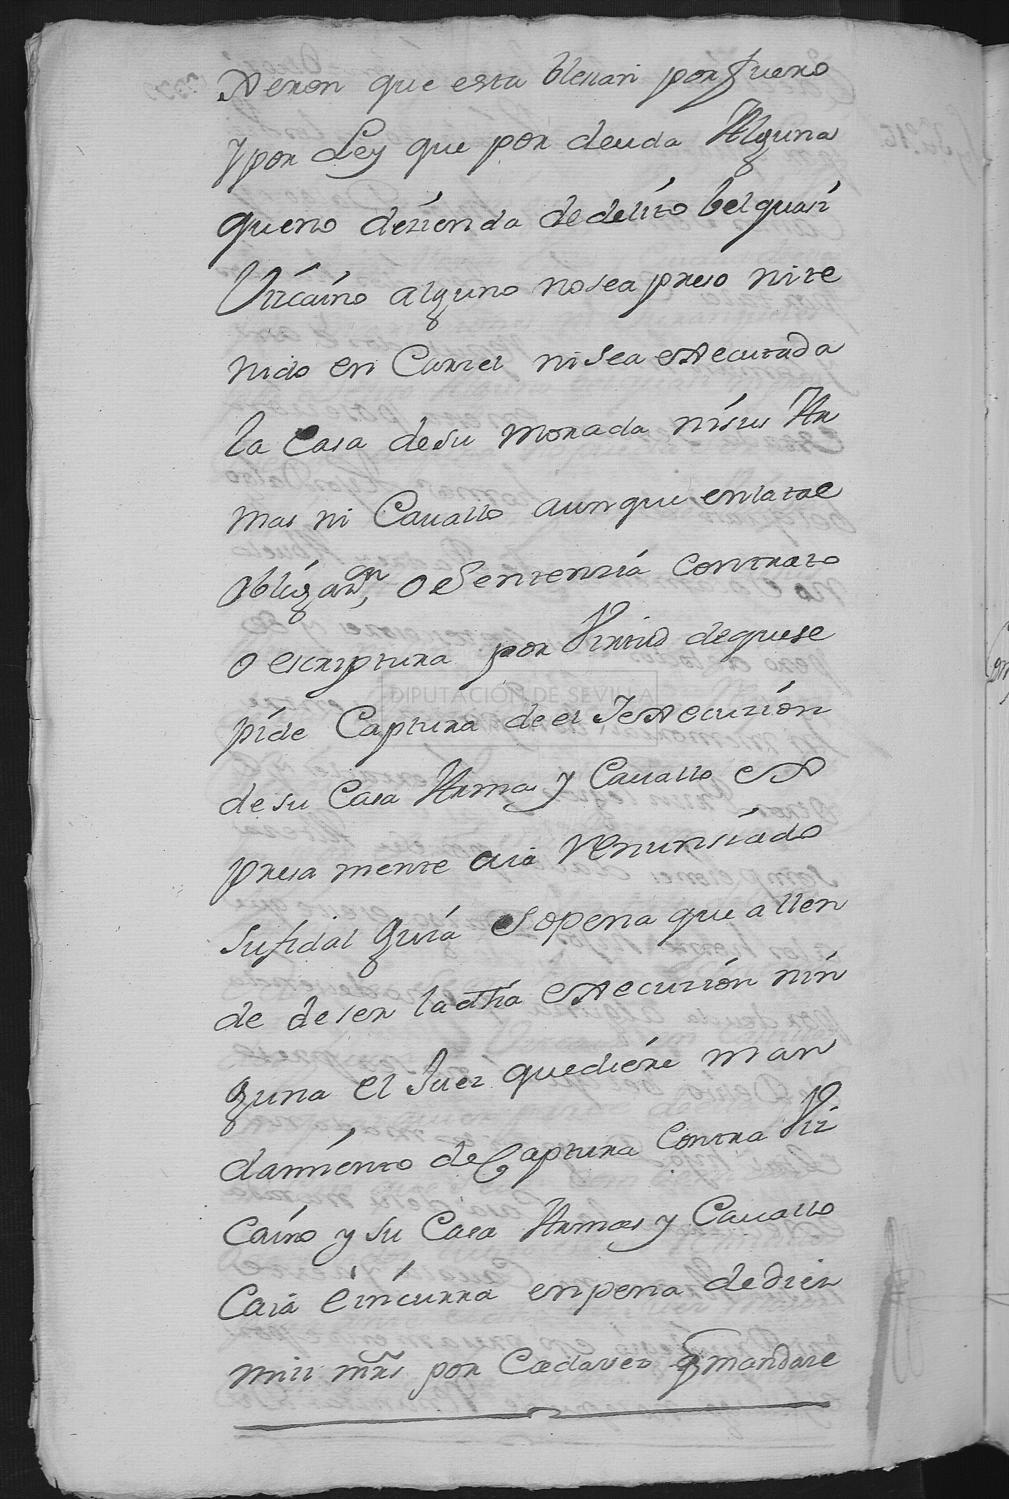 xeron que esta blezian por fuero
y por Ley que por deuda Alguna
queno dezienda dedelito bel quasi
Vizcaino alguno nosea preso nite
nido en Carzel nisea executada
la Casa desu morada nisus Ar
mas ni Cauallo aunque enlatal
obligazn, o Sentenzia contrato
o escriptura por Virtud dequese
pide Captura de el Iexecuzion
desu Casa Armas y Cauallo ex
presamente aia renunsiado
sufidalguia Sopena que allen
de deser la dha execuzion nin
guna el Juez quediere man
damiento de Captura contra Viz
caino y su Casa Armas y Cauallo
Caia e incurra enpena dediez
mill mrs por Cadavez q mandare
DIPUTACIÓN DE SEVILLA